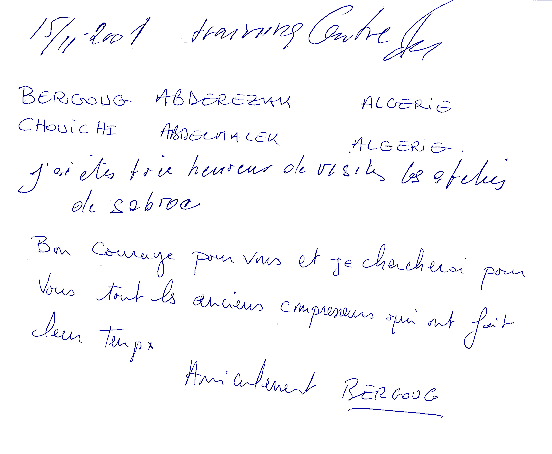 15/11-2001 training Centre
BERGOUG ABDEREZAK ALGERIE
CHOUICHI ABDELMALEK ALGERIE.
j'ai étés très heureux de visités les atelies
de sabroe
Bon Courage pour vous et je chercherai pour
Vous tout les anciens compresseurs qui ont fait
leur temps
Amicalement BERGOUG